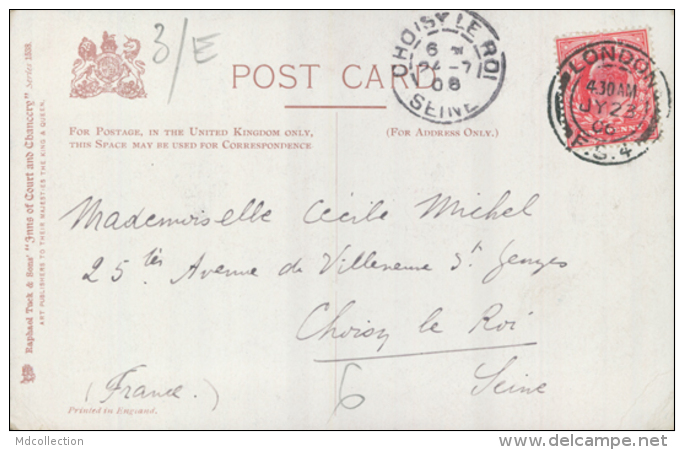 3/E
POST CARD.
CHOISY LE ROI
6
24 - 7
08
SEINE
LONDON
4.30 AM
JY 23
F.S. 4
FOR POSTAGE, IN THE UNITED KINGDOM ONLY,
THIS SPACE MAY BE USED FOR CORRESPONDENCE.
(FOR ADDRESS ONLY.)
Raphael Tuck & Sons' "Inns of Court and Chancery" Series 1538.
ART PUBLISHERS TO THEIR MAJESTIES THE KING & QUEEN.
Mademoiselle Cécile Michel
25 Avenue de Villeneuve St
Choisy le Roi
(France.) 6 Seine
Printed in England.
Mdcollection
www.delcampe.net